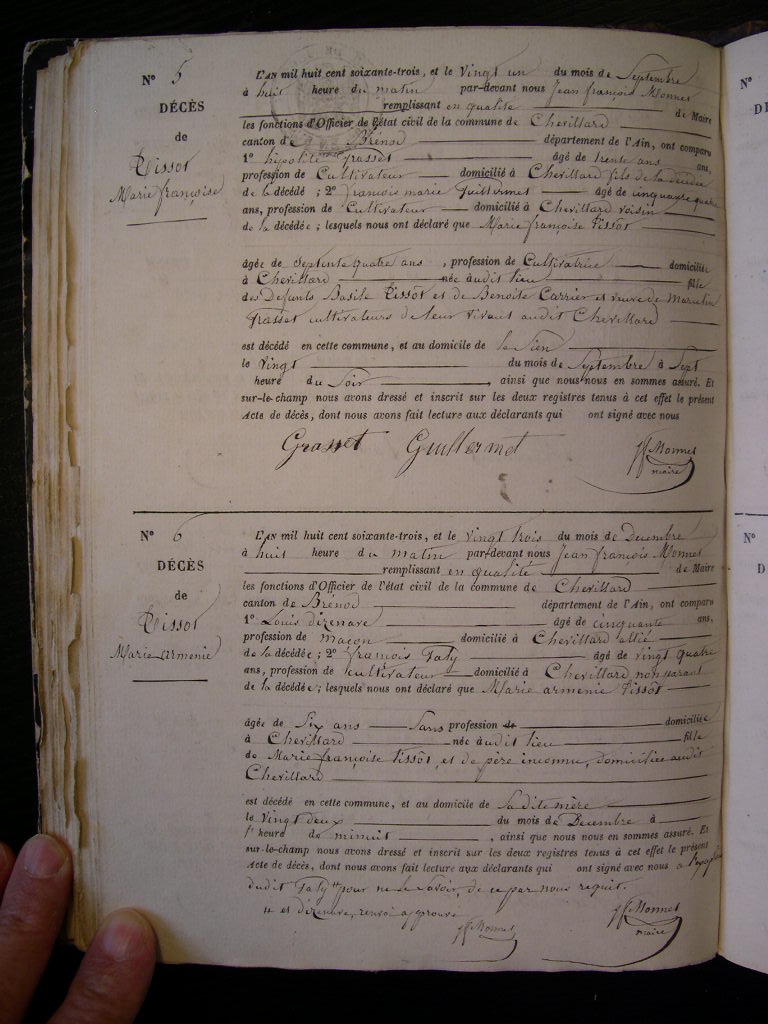 N° 5
DÉCÈS
de
Tissot
Marie françoise
L'AN mil huit cent soixante-trois, et le Vingt un du mois de Septembre
à huit heure du matin par-devant nous Jean françois Monnet
remplissant en qualité de Maire
les fonctions d'Officier de l'état civil de la commune de Chevillard
canton de Brénod département de l'Ain, ont comparu
1° hipolite Grasset âgé de trente ans ans,
profession de Cultivateur domicilié à Chevillard fils de la décédée
de la décédé ; 2° françois marie Guillermet âgé de cinquante quatre
ans, profession de Cultivateur domicilié à Chevillard voisin
de la décédée ; lesquels nous ont déclaré que Marie françoise Tissot
âgée de Septente quatre ans, profession de Cultivatrice domiciliée
à Chevillard née audit lieu fille
des Defunts Basile Tissot et de Benoite Carrier et veuve de Marcelin
Grasset cultivateurs de leur vivant audit Chevillard
est décédé en cette commune, et au domicile de le Sien
le Vingt du mois de Septembre à Sept
heure du Soir, ainsi que nous nous en sommes assuré. Et
sur-le-champ nous avons dressé et inscrit sur les deux registres tenus à cet effet le présent
Acte de décès, dont nous avons fait lecture aux déclarants qui ont signé avec nous
Grasset Guillermet Monnet
maire
N° 6
DÉCÈS
de
Tissot
Marie armenie
L'AN mil huit cent soixante-trois, et le vingt trois du mois de Decembre
à huit heure du matin par-devant nous Jean françois Monnet
remplissant en qualité de Maire
les fonctions d'Officier de l'état civil de la commune de Chevillard
canton de Brénod département de l'Ain, ont comparu
1° Louis dizenave âgé de cinquante ans,
profession de maçon domicilié à Chevillard allié
de la décédée ; 2° françois Taly âgé de vingt quatre
ans, profession de cultivateur domicilié à Chevillard non parant
de la décédée ; lesquels nous ont déclaré que Marie armenie Tissot
âgée de Six ans Sans profession de domiciliée
à Chevillard née audit lieu fille
de Marie françoise Tissot, et de père inconnu, domiciliée audit
Chevillard
est décédé en cette commune, et au domicile de Sa dite mère
le Vingt deux du mois de Decembre à
heure de minuit, ainsi que nous nous en sommes assuré. Et
sur-le-champ nous avons dressé et inscrit sur les deux registres tenus à cet effet le présent
Acte de décès, dont nous avons fait lecture aux déclarants qui ont signé avec nous
dudit Taly pour ne le Savoir, de ce par nous requit.
et dizenave, renvoi approuvé
Monnet Monnet
maire
N°
N°
D